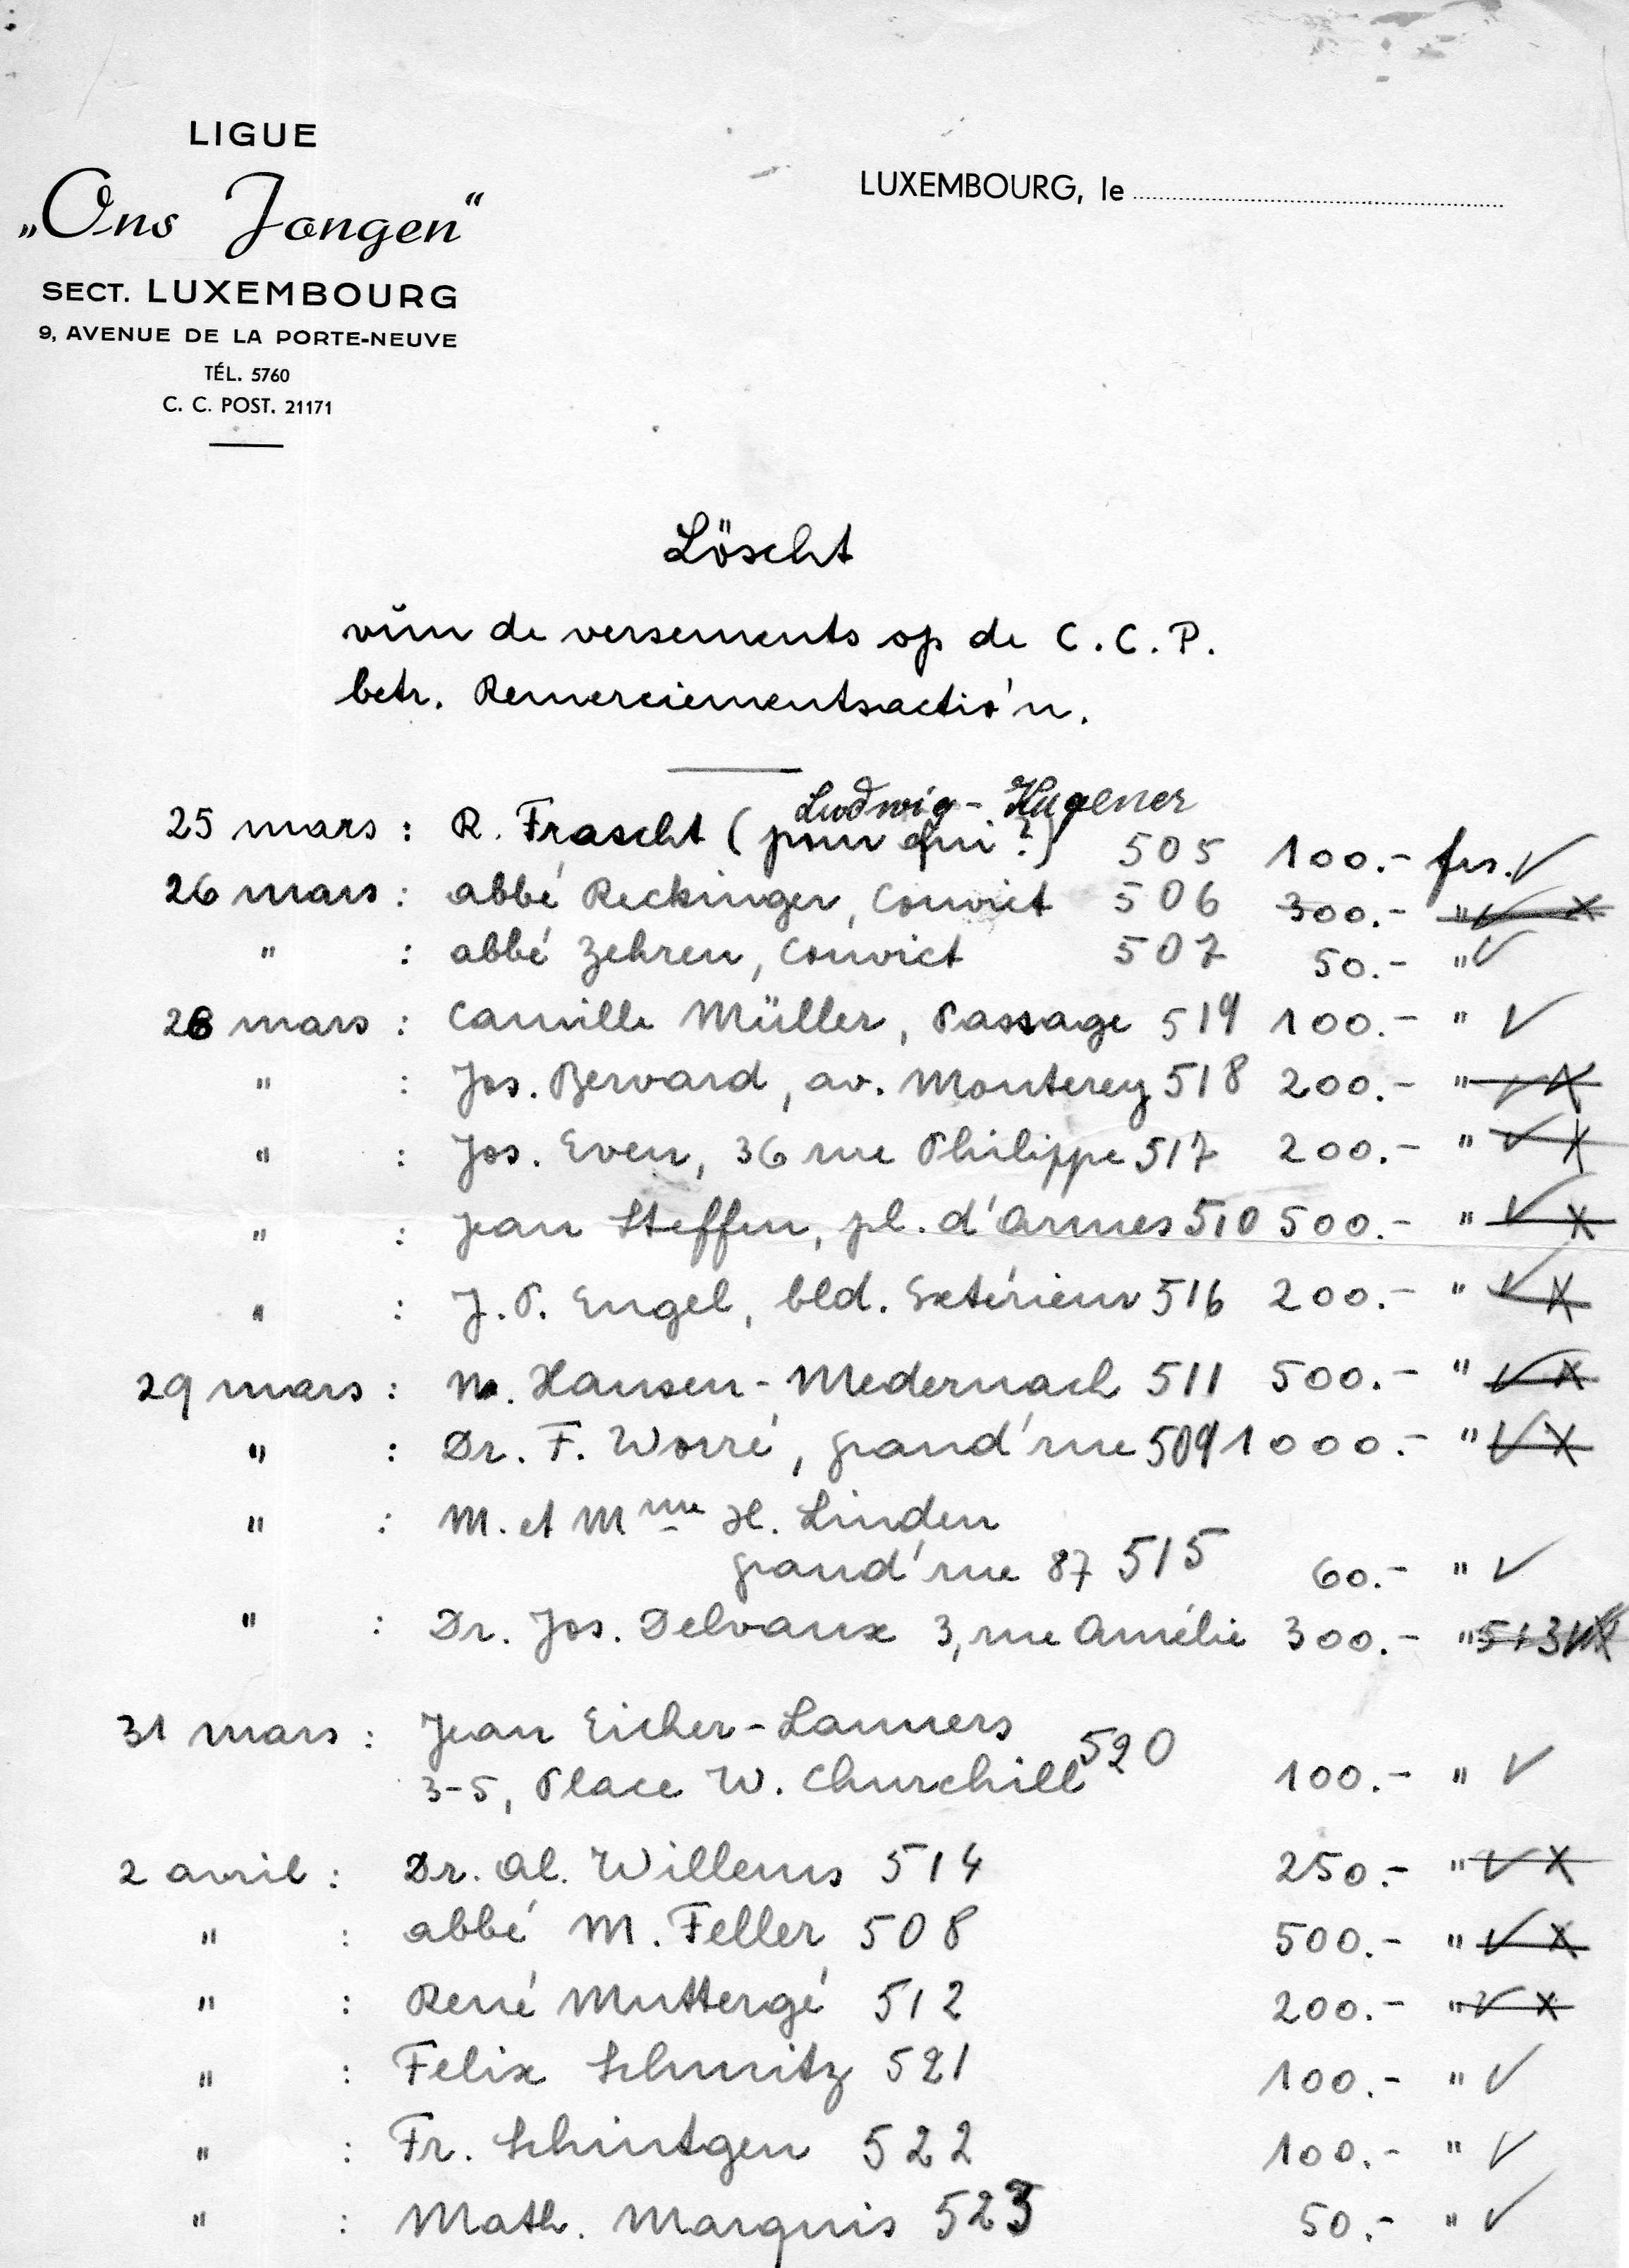 LIGUE
„Ons Jongen“
SECT. LUXEMBOURG
9, AVENUE DE LA PORTE-NEUVE
TÉL. 5760
C. C. POST. 21171
LUXEMBOURG, le
Löscht
vŭn de versements op de C.C.P.
betr. Remerciementsactio'n.
Ludwig - Hugener
25 mars : R. Frascht (pour qui?) 505 100.- frs. ✓
26 mars : abbé Reckinger, Convict 506 300.- " ✓ X
" : abbé Zehren, Convict 507 50.- " ✓
28 mars : Camille Müller, Passage 519 100.- " ✓
" : Jos. Bervard, av. Monterey 518 200.- " ✓ X
" : Jos. Even, 36 rue Philippe 517 200.- " ✓ X
" : Jean Steffen, pl. d'Armes 510 500.- " ✓ X
" : J.P. Engel, bld. Extérieur 516 200.- " ✓ X
29 mars : M. Hansen-Medernach 511 500.- " ✓ X
" : Dr. F. Worré, grand'rue 509 1000.- " ✓ X
" : M. et Mme H. Linden
grand'rue 87 515 60.- " ✓
" : Dr. Jos. Delvaux 3, rue Amélie 300.- " 513 ✓ X
31 mars : Jean Eicher-Lanners
3-5, Place W. Churchill 520 100.- " ✓
2 avril : Dr. Al. Willems 514 250.- " ✓ X
" : abbé M. Feller 508 500.- " ✓ X
" : René Muttergé 512 200.- " ✓ X
" : Felix Schmitz 521 100.- " ✓
" : Fr. Schintgen 522 100.- " ✓
" : Math. Marquis 523 50.- " ✓